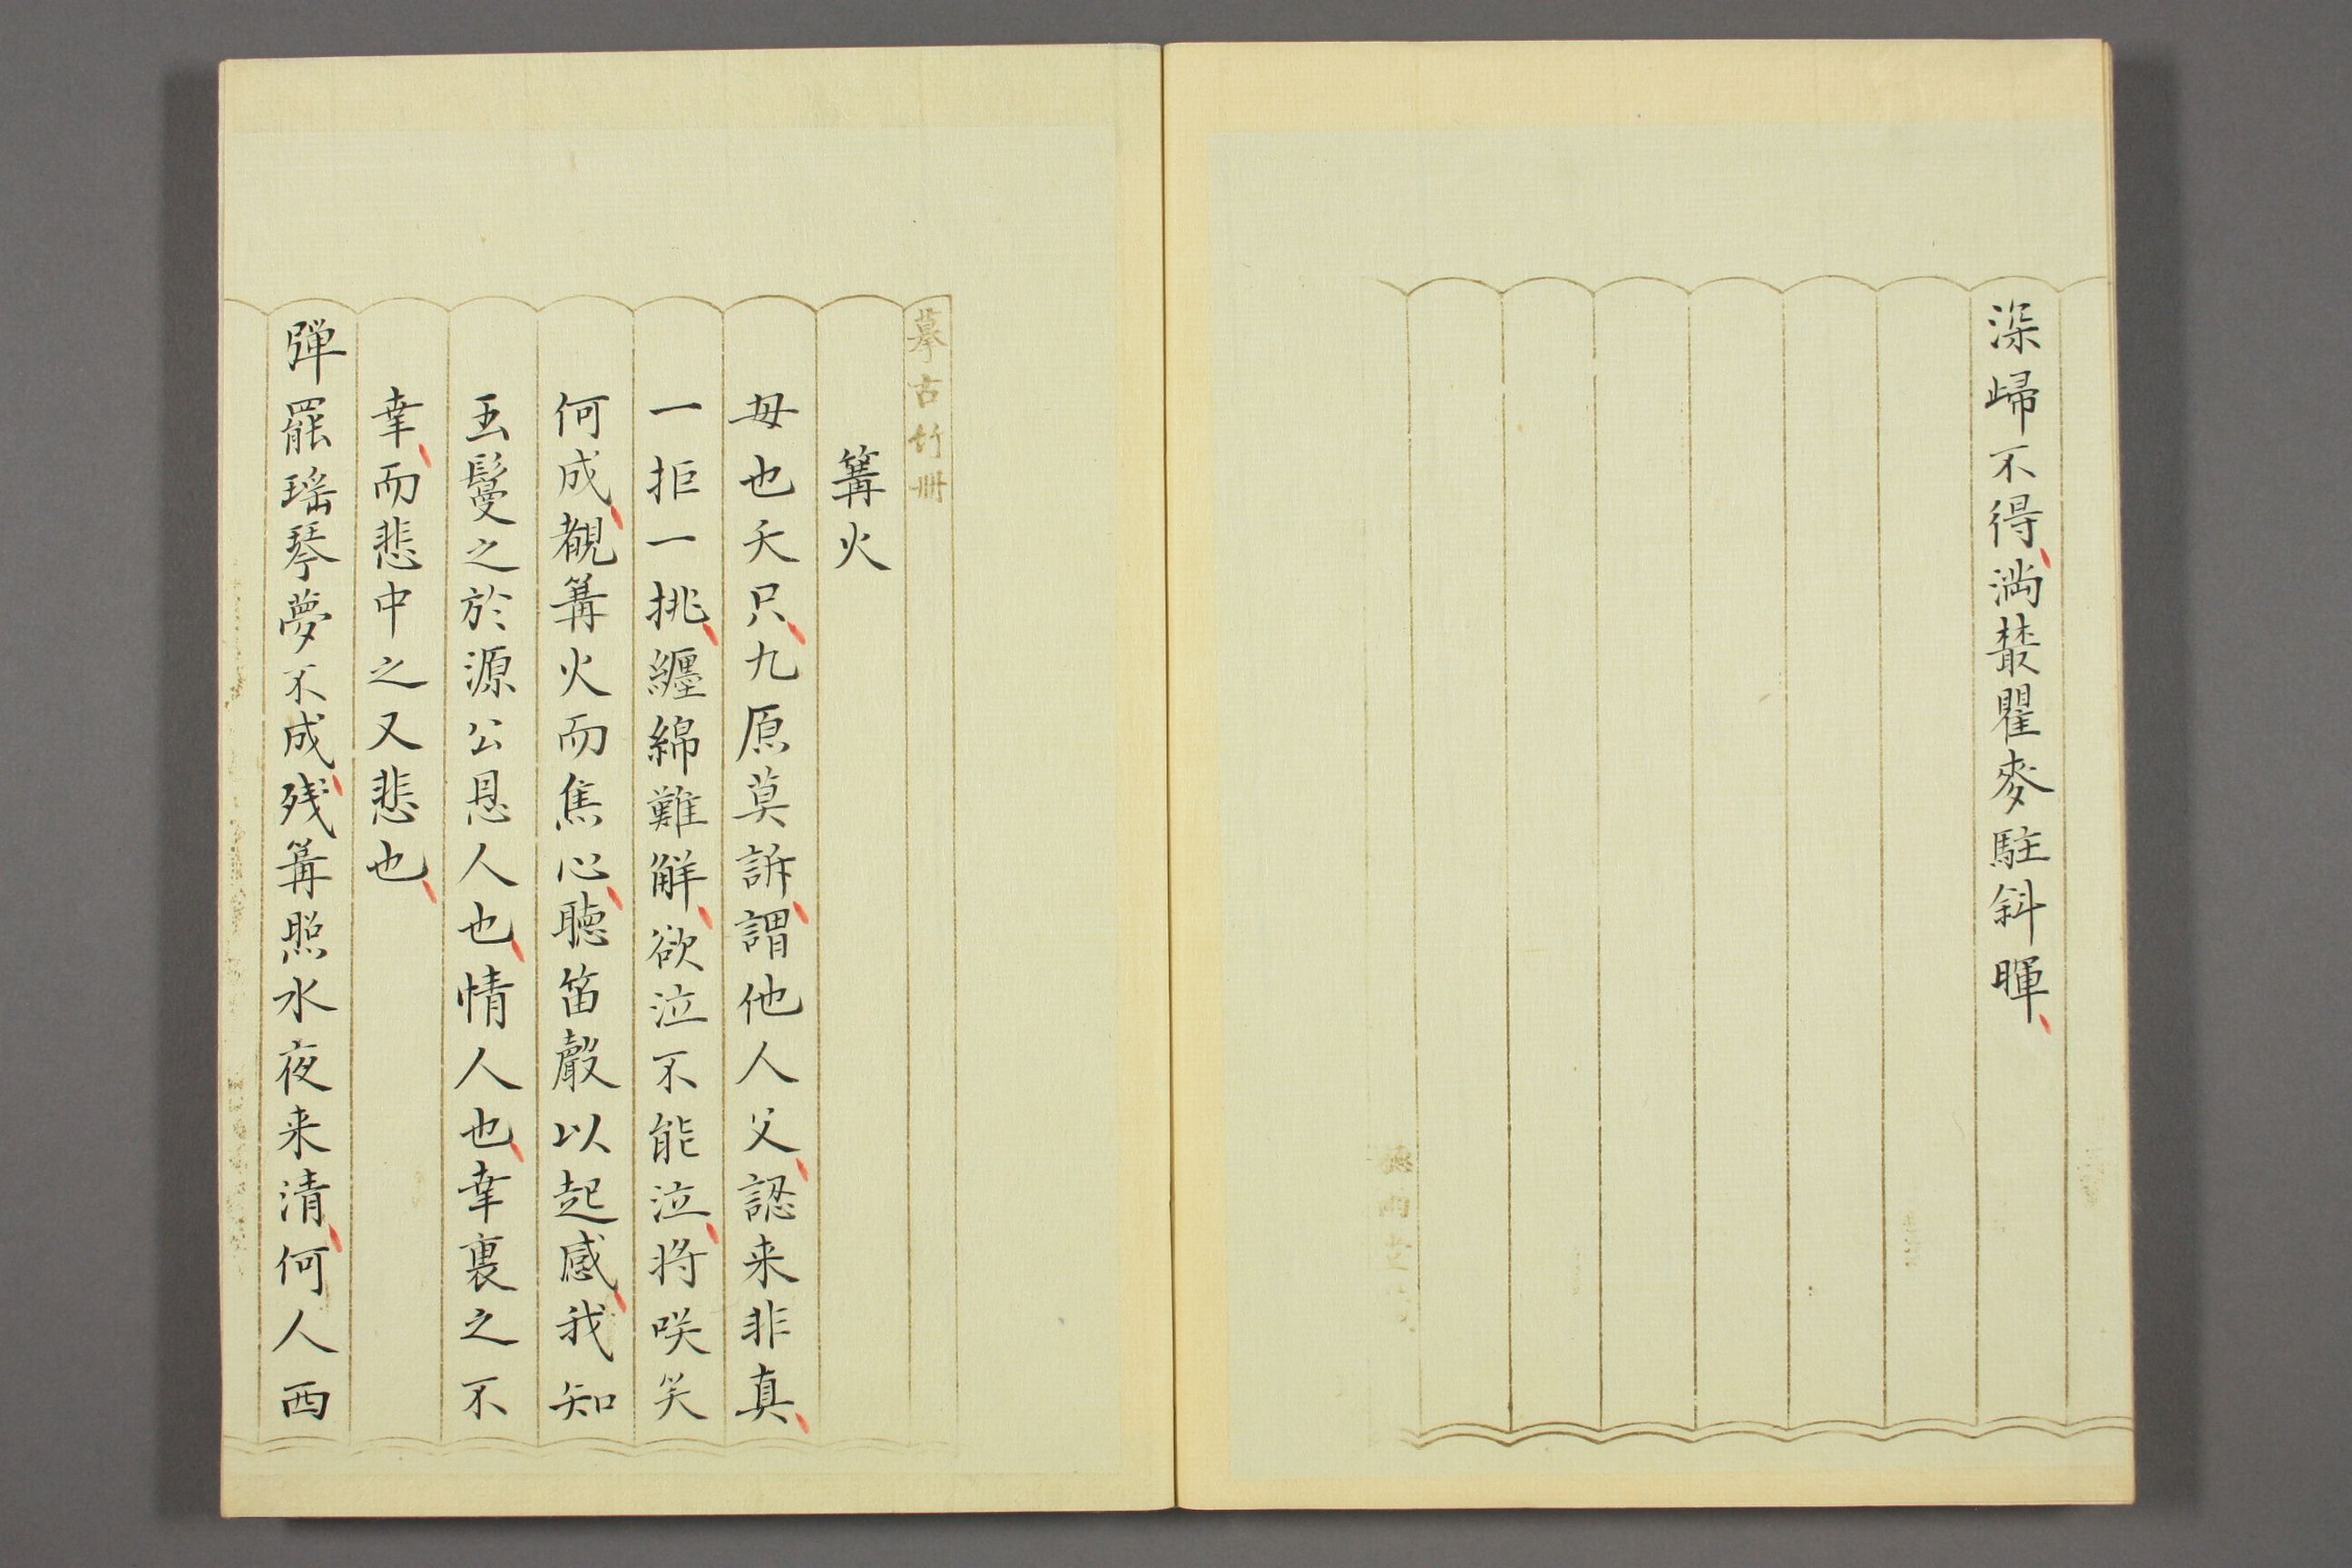 深歸不得満叢瞿麥駐斜暉
摹古竹冊
篝火
母也天只九原莫訴謂他人父認来非真
一拒一挑纏綿難解欲泣不能泣将咲笑
何成覩篝火而焦心聴笛聲以起感我知
玉鬘之於源公恩人也情人也幸裏之不
幸而悲中之又悲也
弾罷瑶琴夢不成残篝照水夜来清何人西